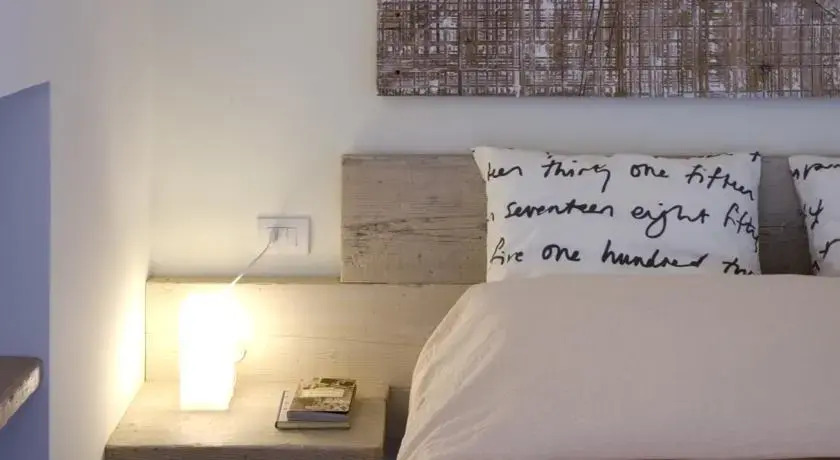 thirty one fifteen
seventeen eight fifty
five one hundred